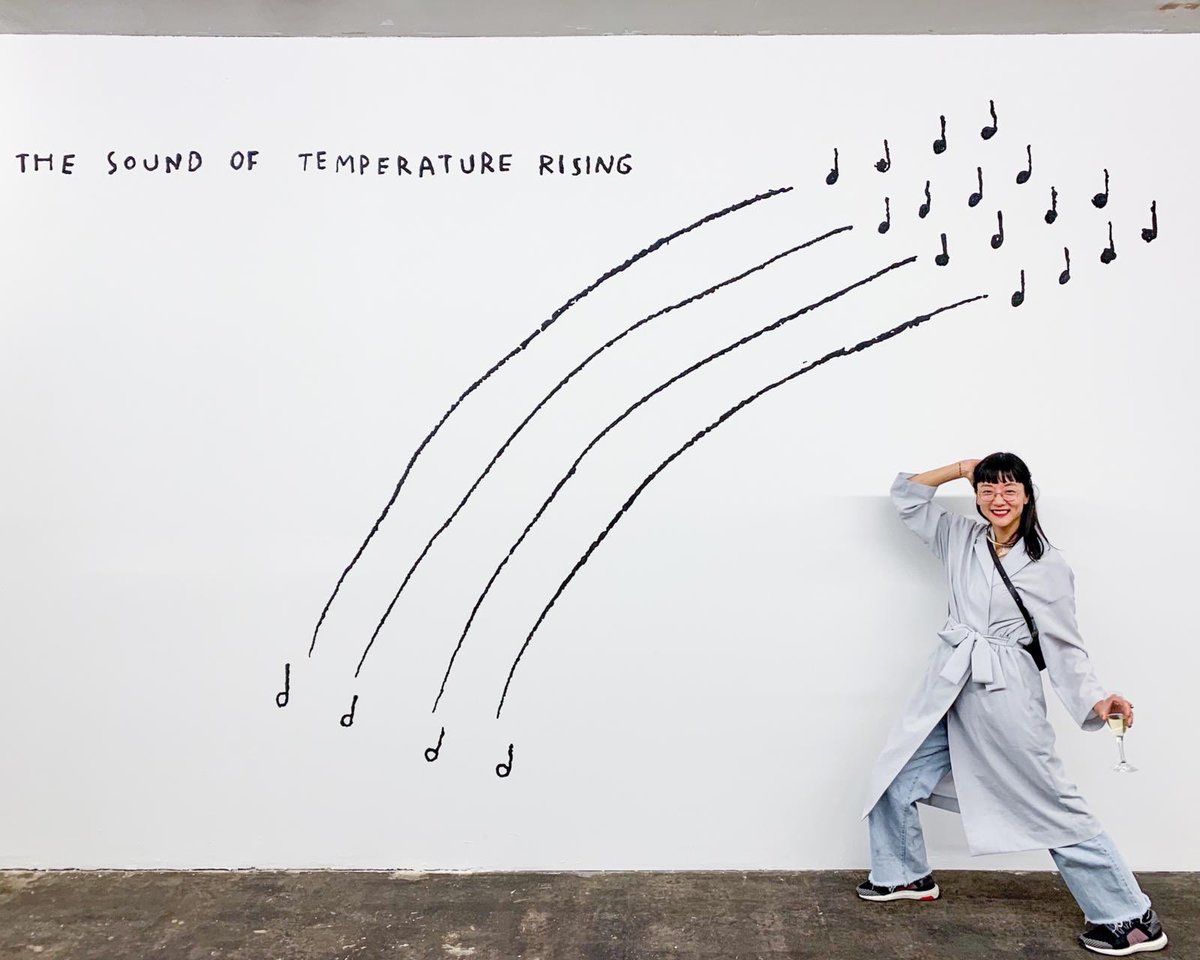 THE SOUND OF TEMPERATURE RISING